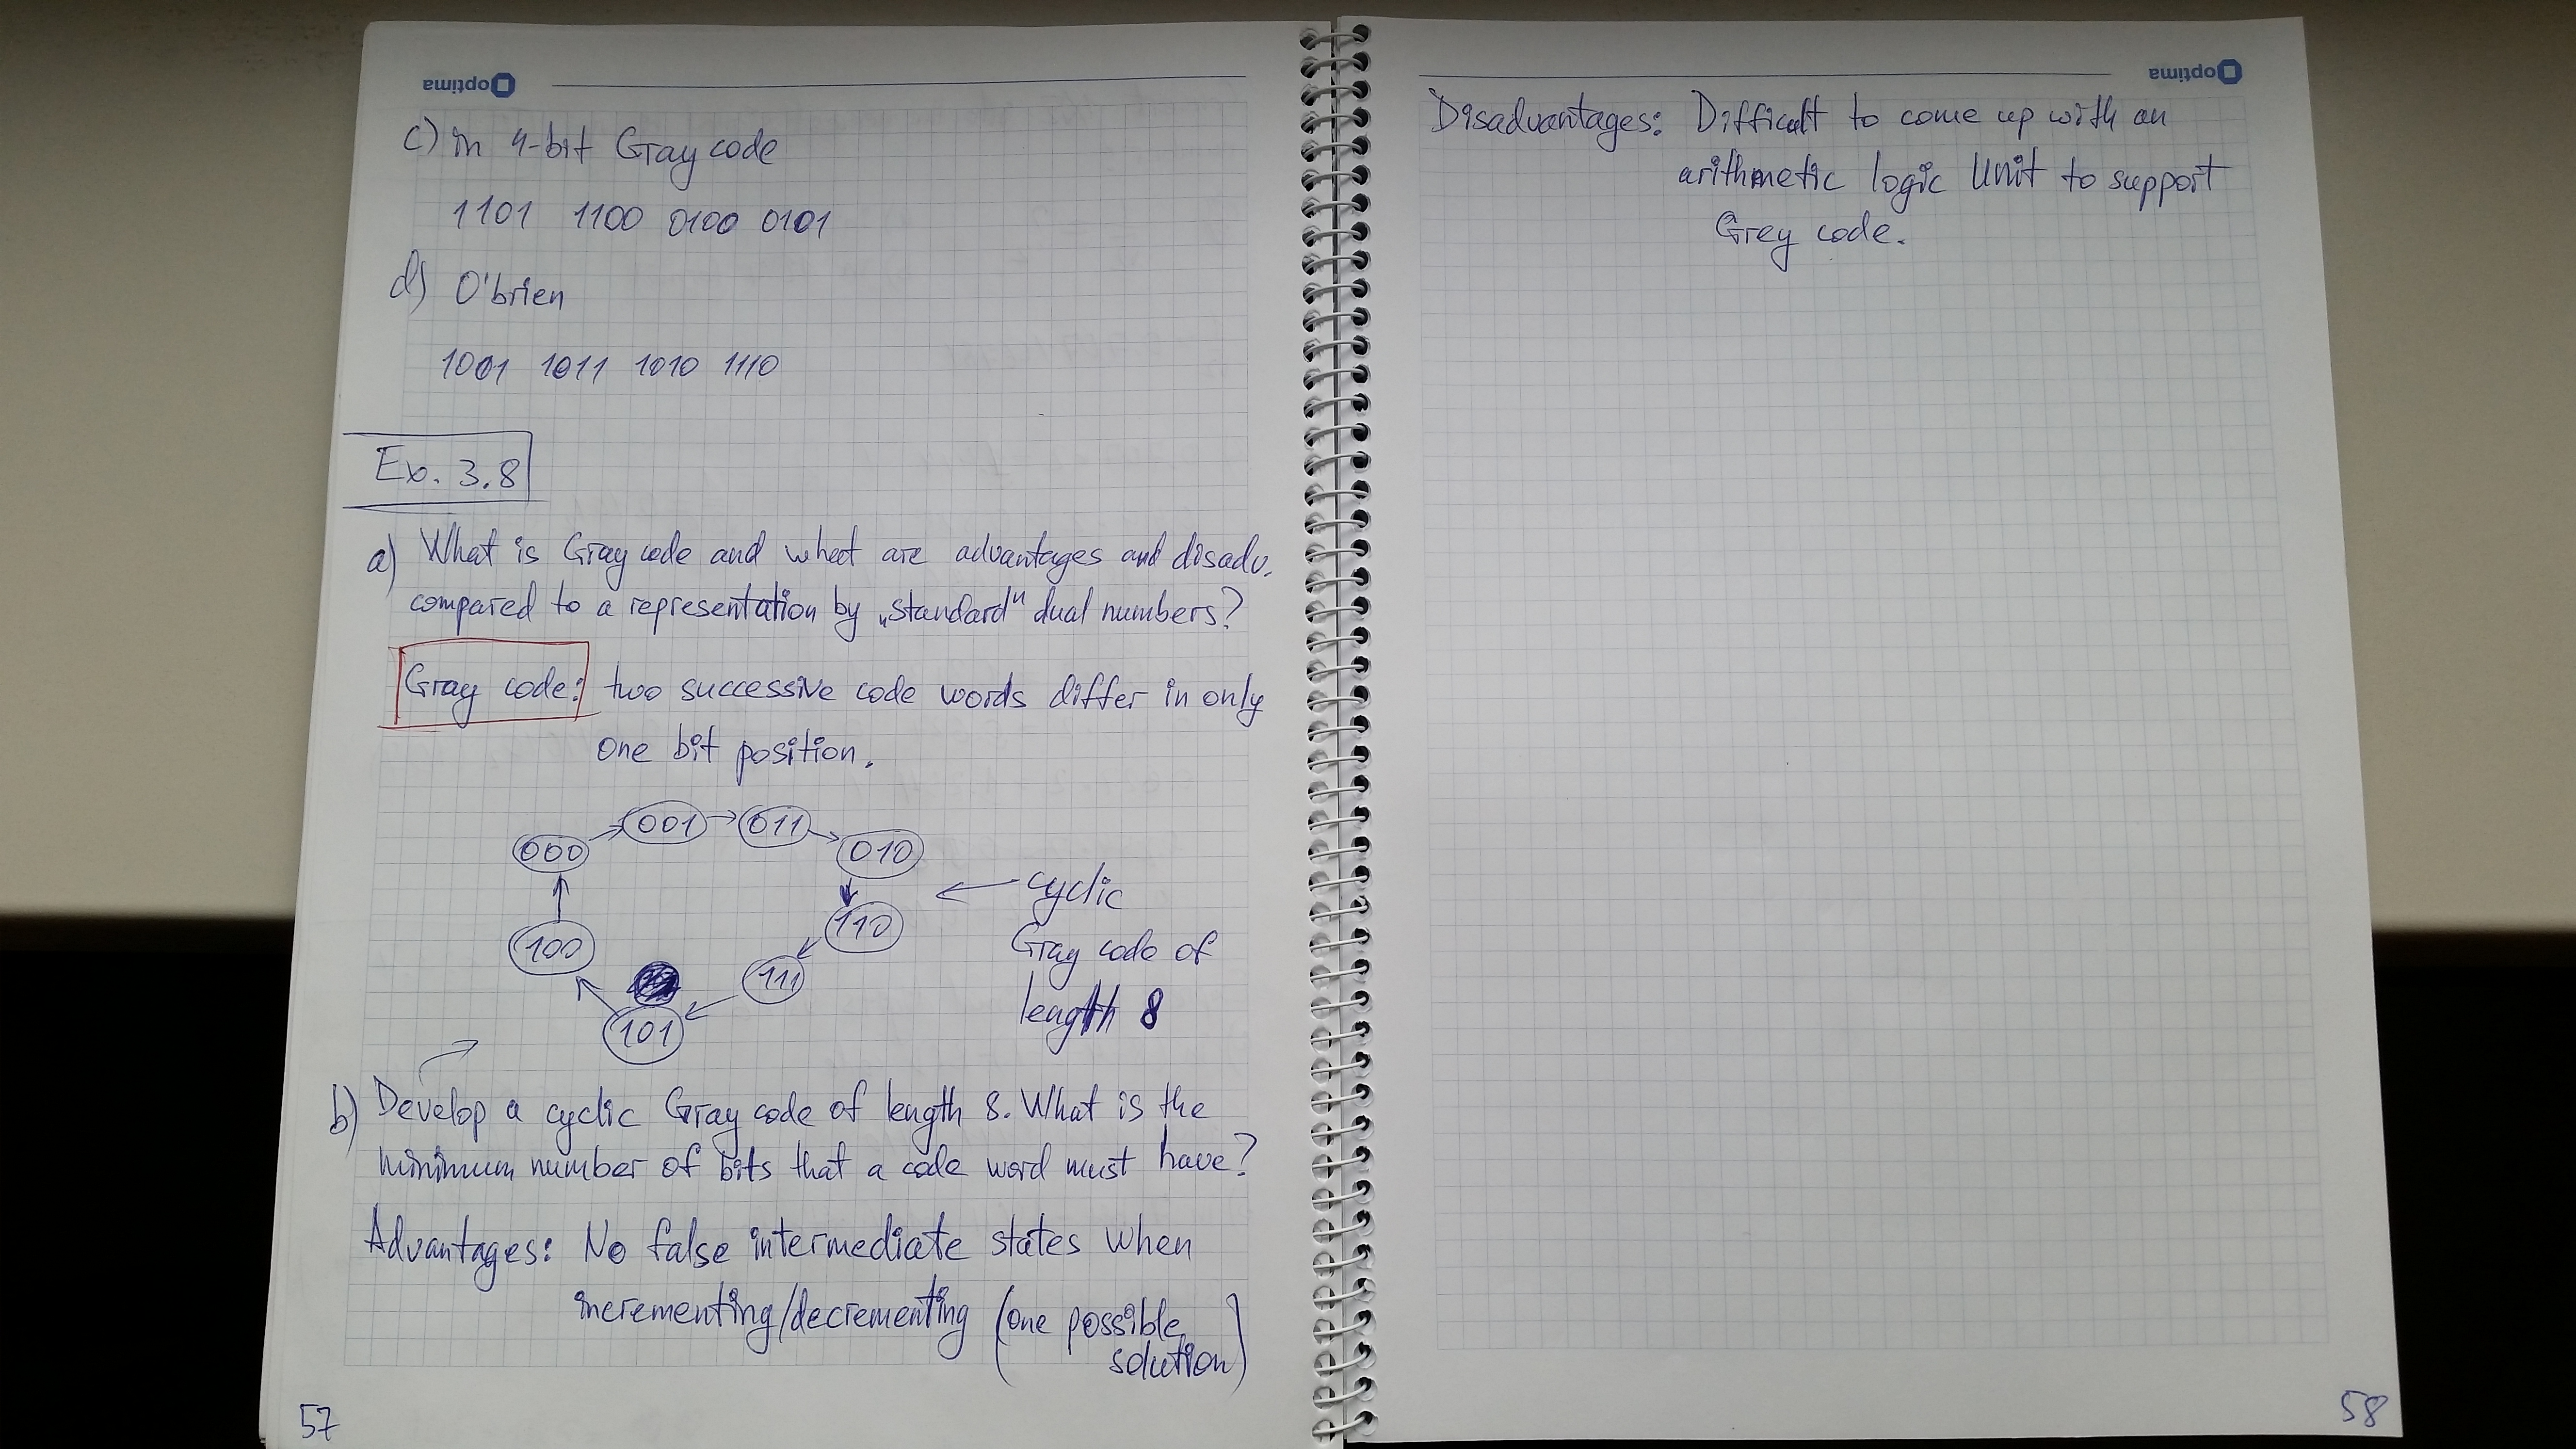 optima
c) in 4-bit Gray code
1101 1100 0100 0101
d) O'brien
1001 1011 1010 1110
Ex. 3.8
a) What is Gray code and what are advantages and disadv.
compared to a representation by „standard" dual numbers?
Gray code: two successive code words differ in only
one bit position.
000 001 011 010
110
111
101
100
cyclic
Gray code of
length 8
b) Develop a cyclic Gray code of length 8. What is the
minimum number of bits that a code word must have?
Advantages: No false intermediate states when
incrementing/decrementing (one possible
solution)
57
optima
Disadvantages: Difficult to come up with an
arithmetic logic Unit to support
Grey code.
58